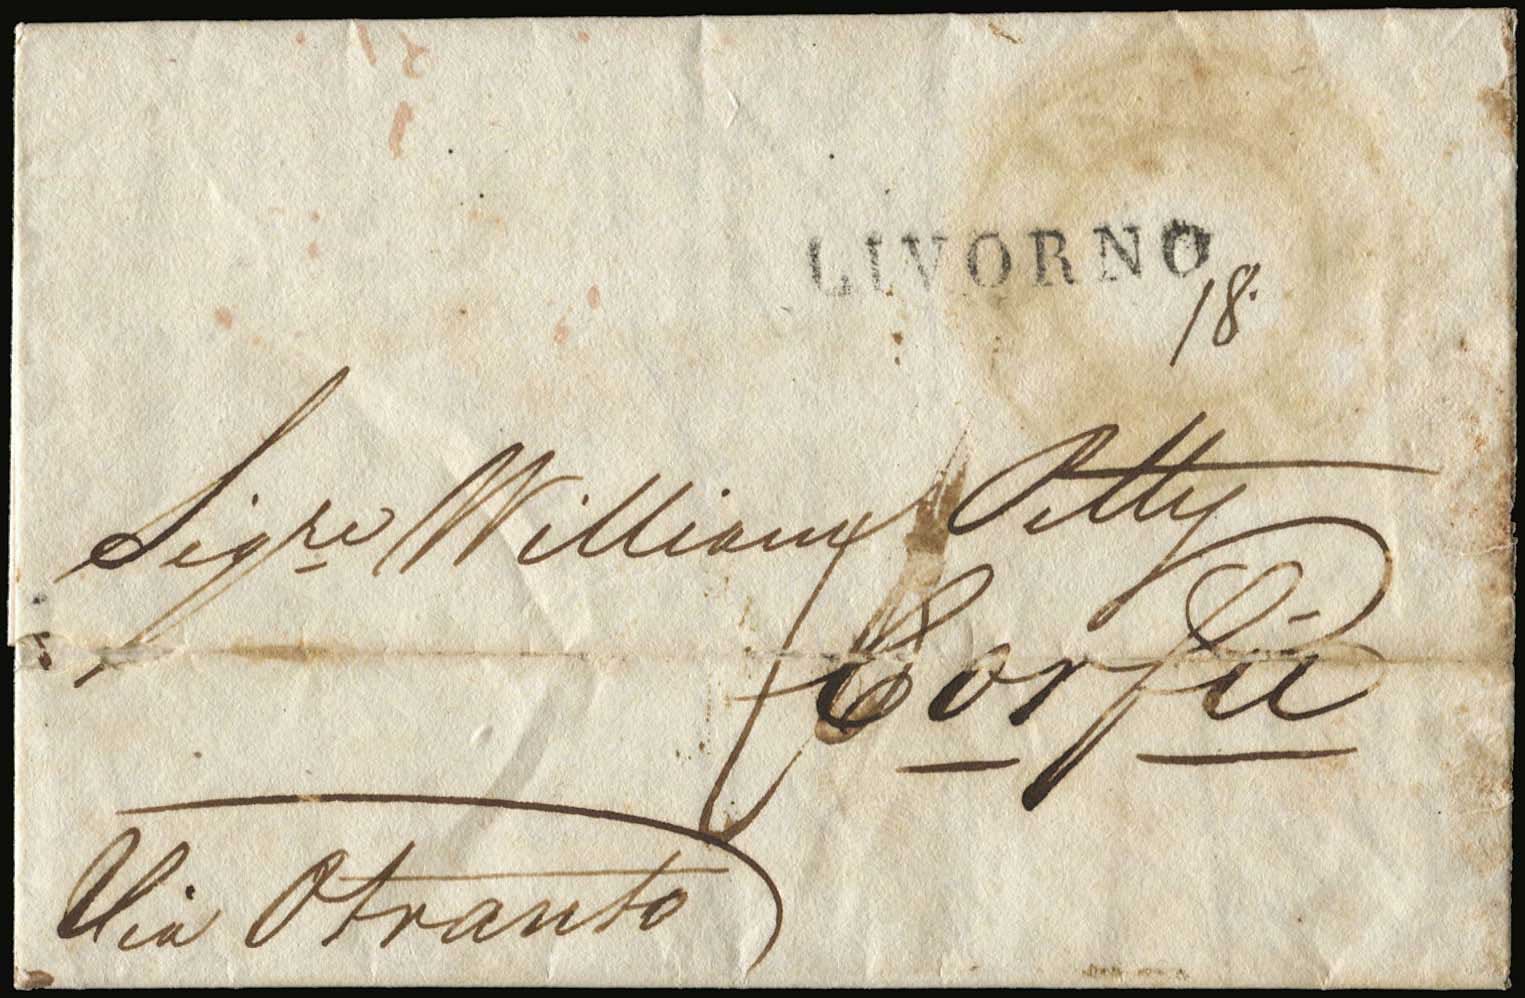 LIVORNO
18.
Sigre William Petty
Corfù
Via Otranto